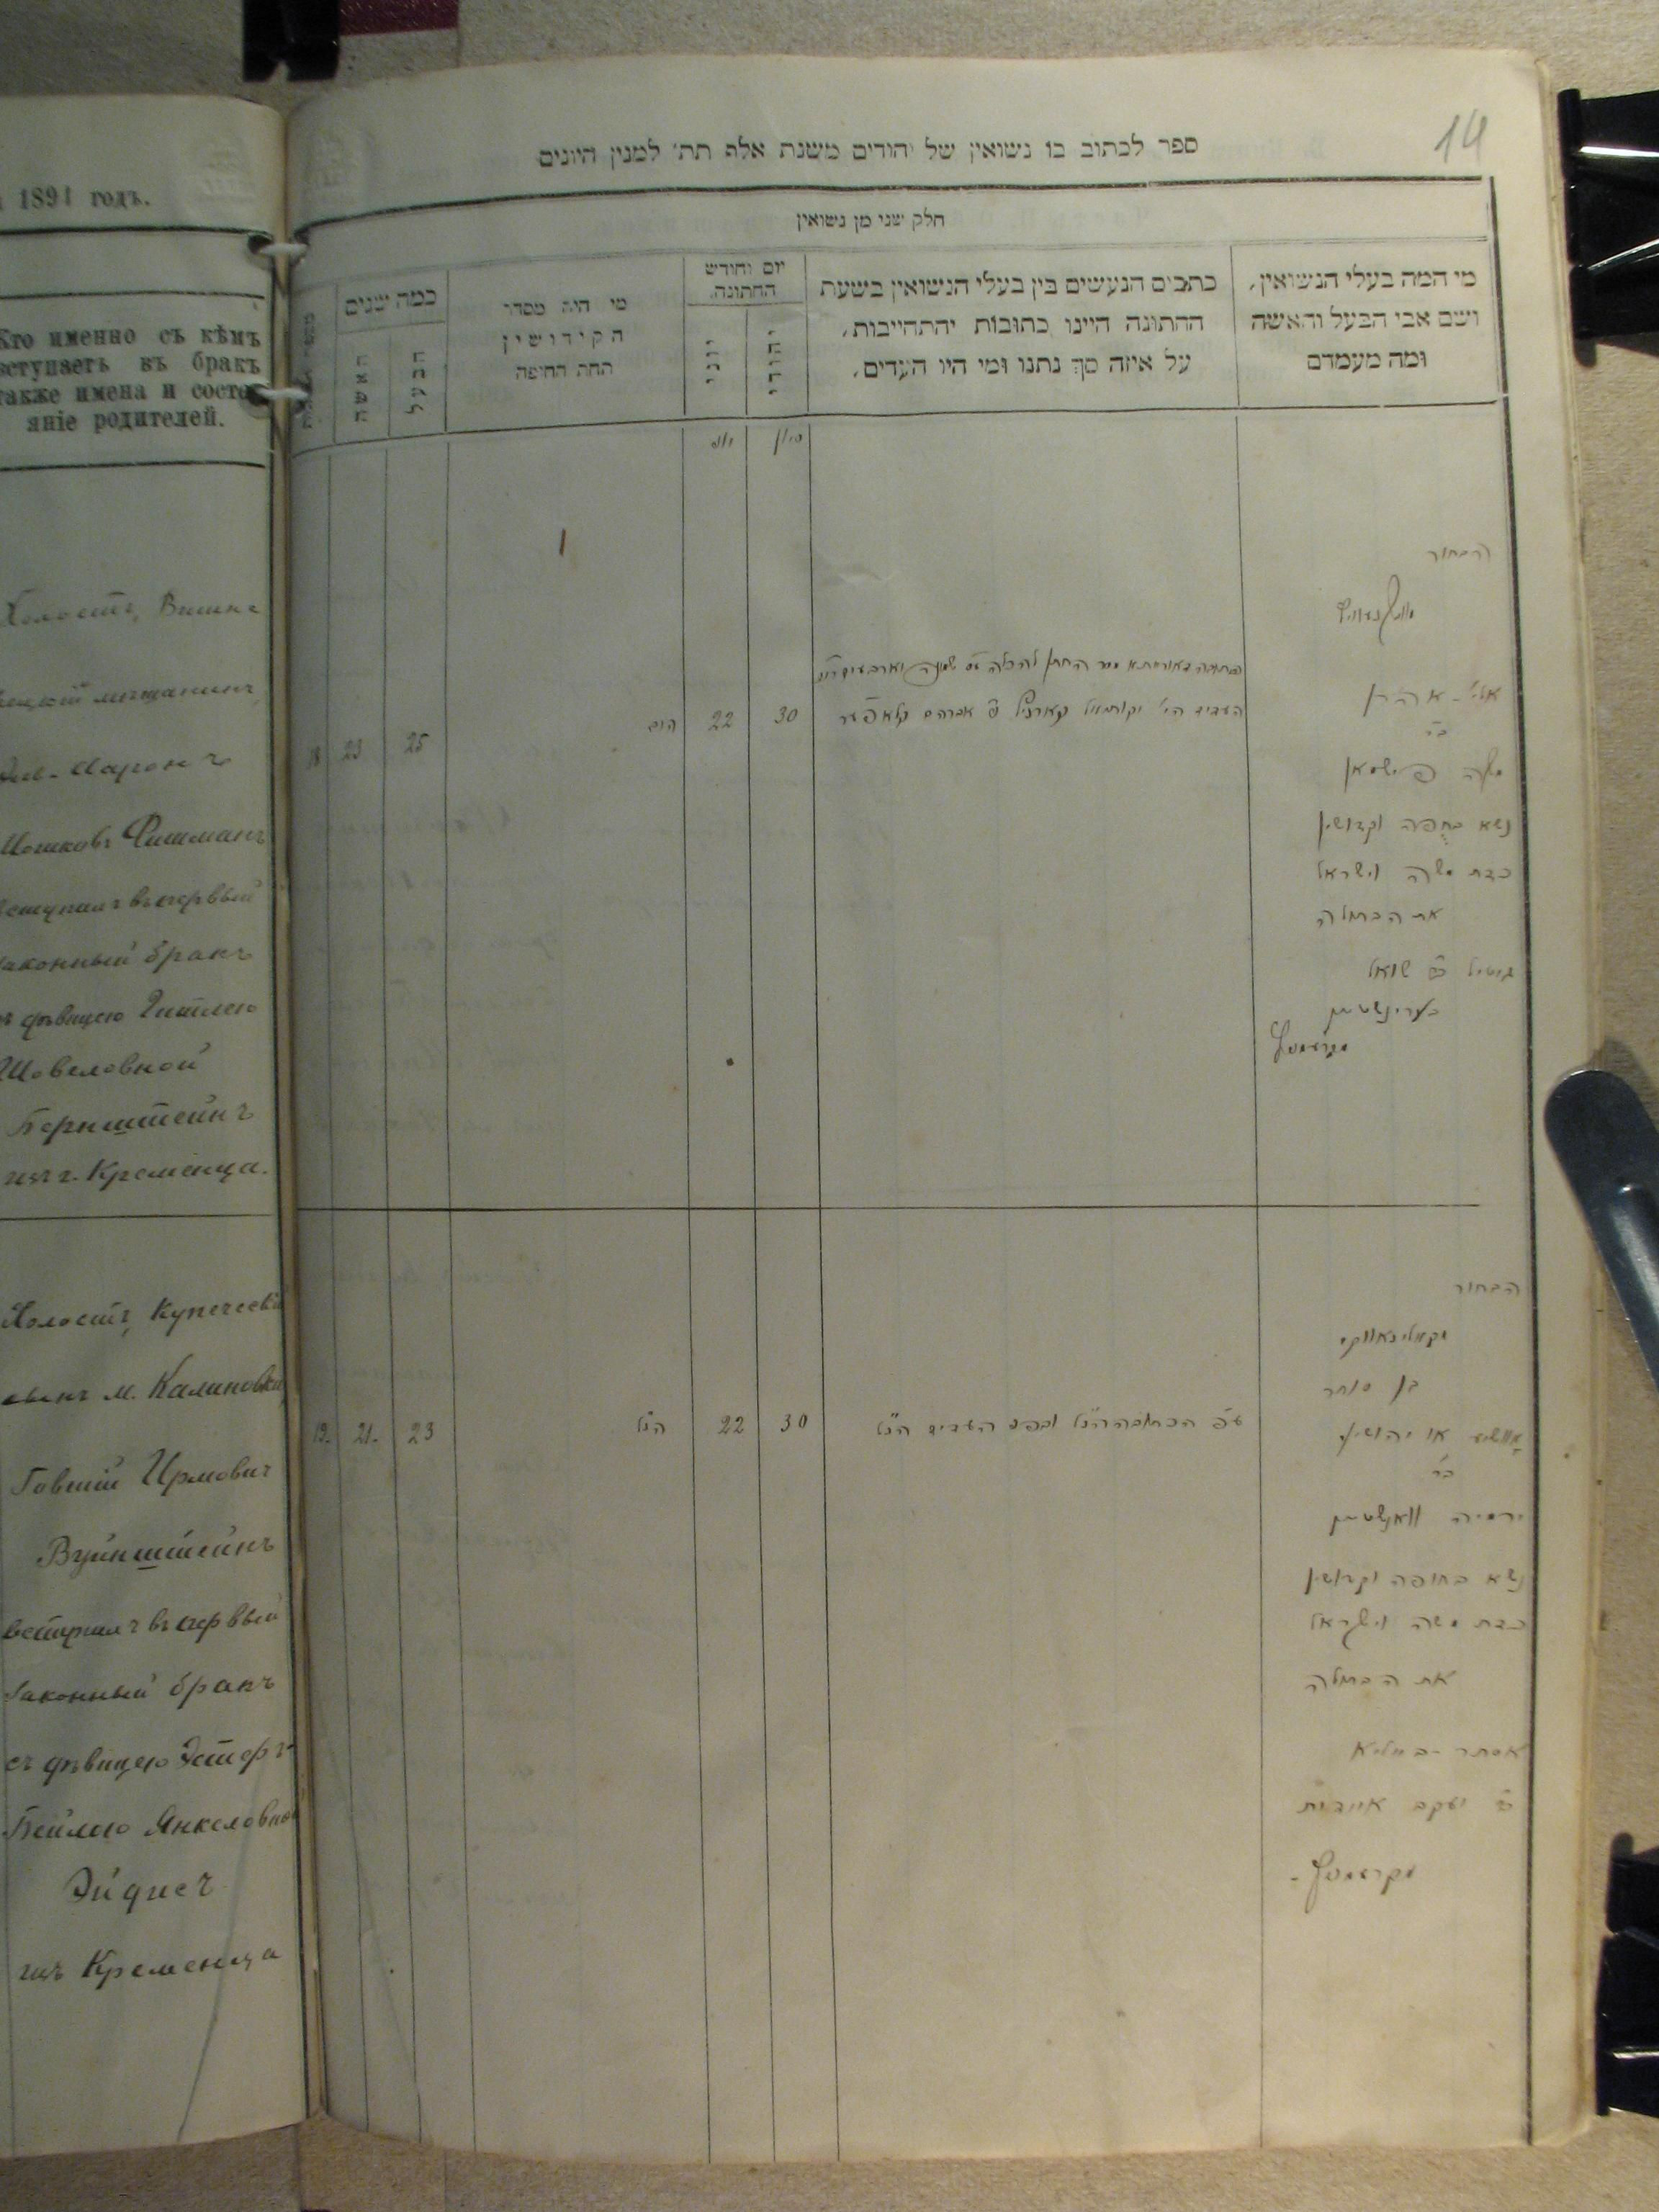 1891 годъ.
Кто именно съ кѣмъ
вступаетъ въ бракъ
также имена и состо-
яніе родителей.
Холостъ,
мѣщанинъ
Ааронъ
Мошковъ Фишманъ
вступилъ въ первый
законный бракъ
съ дѣвицею Гитлею
Шовеловной
Бернштейнъ
изъ г. Кременца.
Холостъ, Купеческій
сынъ м. Калиновки
Ирмовичъ
Вуйнштейнъ
вступилъ въ первый
законный бракъ
съ дѣвицею Эстеръ-
Бейлею Янкеловной
Эйдисъ
изъ Кременца
14
ספר לכתוב בו נשואין של יהודים משנת אלף תת׳ למנין היונים
חלק שני מן נשואין
מי המה בעלי הנשואין,
ושם אבי הבעל והאשה
ומה מעמדם
כתבים הנעשים בין בעלי הנשואין בשעת
החתונה היינו כתובות יהתחייבות,
על איזה סך נתנו ומי היו העדים,
יום וחודש
החתונה.
יהודי
יוני
מי היה מסדר
הקידושין
תחת החופה
כמה שנים
הבעל
האשה
סיון
יוני
הבחור
אלי׳-אהרן
ב״ר
משה פישמאן
נשא בחופה וקדושין
כדת משה וישראל
את הבתולה
גיטיל ב״ר שואל
בערינשטיין
מקרעמניץ
30
22
הרב
25
23
18
הבחור
מקאלינאווקי
בן סוחר
ב״ר
ירמיה וואינשטיין
נשא בחופה וקדושין
כדת משה וישראל
את הבתולה
אסתר-ביילא
ב״ר יעקב איידיס
מקרעמניץ-
ע״פ הכתובה הנ״ל ובפני העדים הנ״ל
30
22
הנ״ל
23
21.
19.